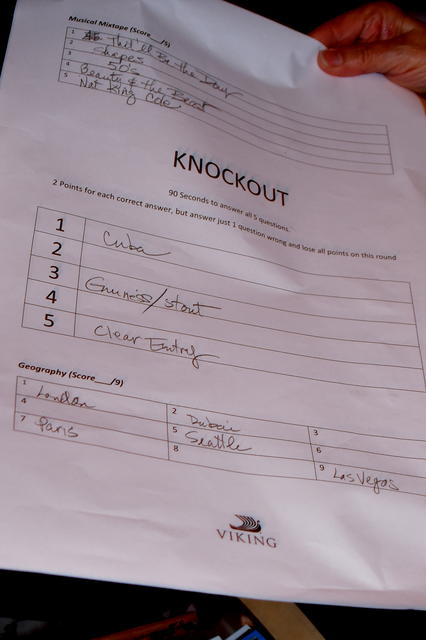 Musical Mixtape (Score___/5)
1 That'll Be the Day
2 Shapes
3 50's
4 Beauty & the Beast
5 Nat King Cole
KNOCKOUT
90 Seconds to answer all 5 questions.
2 Points for each correct answer, but answer just 1 question wrong and lose all points on this round
1 Cuba
2
3 Guiness/stout
4
5 Clear Entry
Geography (Score___/9)
1 London 2 Dubai 3
4 5 Seattle 6
7 Paris 8 9 Las Vegas
VIKING